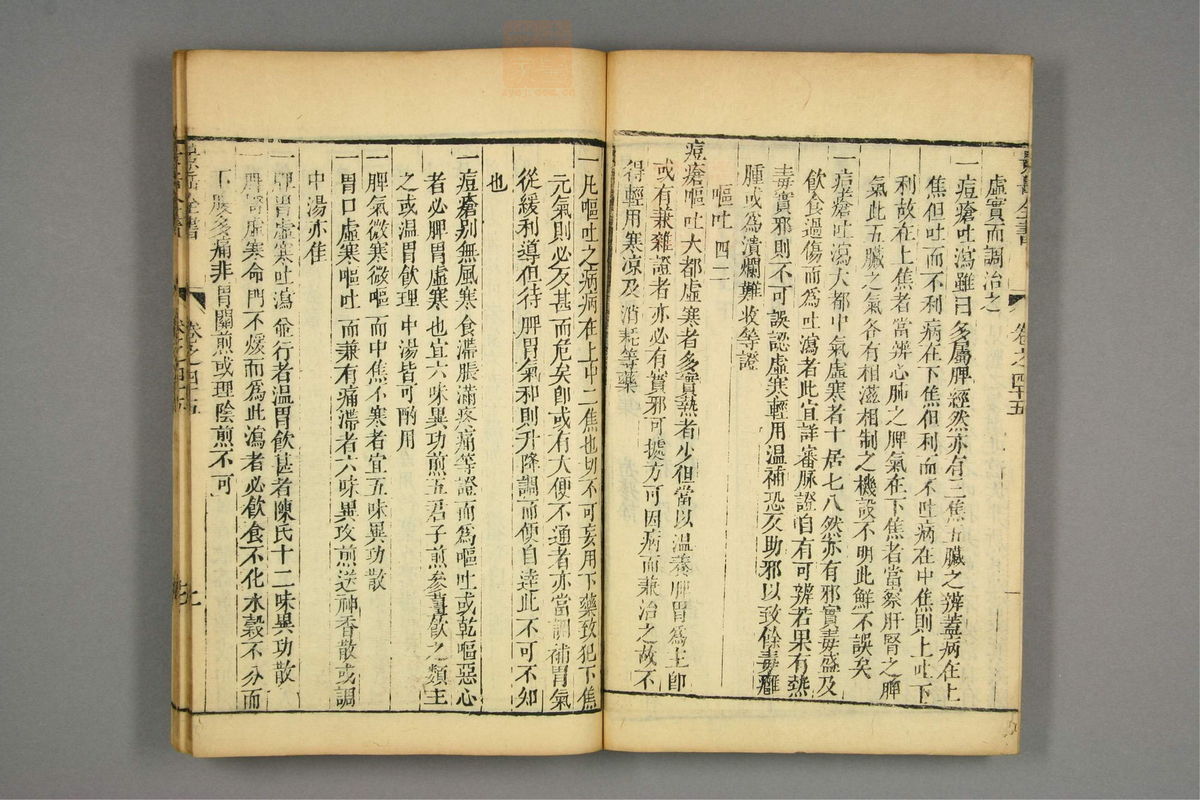 虛實而調治之
一痘瘡吐瀉雖曰多屬脾經然亦有三焦五臟之辨蓋病在上
焦但吐而不利病在下焦但利而不吐病在中焦則上吐下
利故在上焦者當辨心肺之脾氣在下焦者當察肝腎之脾
氣此五臟之氣各有相滋相制之機設不明此鮮不誤矣
一痘瘡吐瀉大都中氣虛寒者十居七八然亦有邪實毒盛及
飲食過傷而為吐瀉者此宜詳審脉證自有可辨若果有熱
毒實邪則不可誤認虛寒輕用溫補恐反助邪以致餘毒癰
腫或為潰爛難收等證
嘔吐 四二
痘瘡嘔吐大都虛寒者多實熱者少但當以溫養脾胃為主即
或有兼雜證者亦必有實邪可據方可因病而兼治之故不
得輕用寒涼及消耗等藥
一凡嘔吐之病病在上中二焦也切不可妄用下藥致犯下焦
元氣則必反甚而危矣即或有大便不通者亦當調補胃氣
從緩利導但待脾胃氣和則升降調而便自達此不可不知
也
一痘瘡別無風寒食滯脹滿疼痛等證而為嘔吐或乾嘔惡心
者必脾胃虛寒也宜六味異功煎五君子煎參薑飲之類主
之或溫胃飲理中湯皆可酌用
一脾氣微寒微嘔而中焦不寒者宜五味異功散
一胃口虛寒嘔吐而兼有痛滯者六味異攻煎送神香散或調
中湯亦隹
一脾胃虛寒吐瀉並行者溫胃飲甚者陳氏十二味異功散
脾腎虛寒命門不煖而為此瀉者必飲食不化水穀不分而
下腹多痛非胃關煎或理陰煎不可
卷之四十五